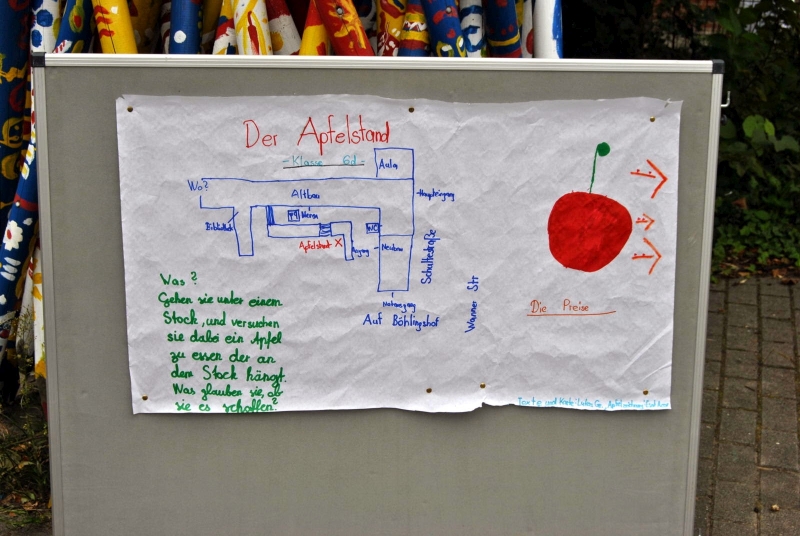 Der Apfelstand
- Klasse 6d -
Aula
Wo?
Altbau
Haupteingang
Bibliothek
Mensa
WC
Apfelstand X
Neubau
Schultestraße
Wanner Str
Auf Böhlingshof
Was?
Gehen sie unter einem
Stock, und versuchen
sie dabei ein Apfel
zu essen der an
dem Stock hängt.
Was glauben sie, ob
sie es schaffen?
Die Preise
Texte und Karte